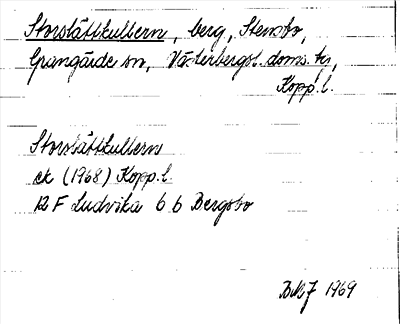 Storslättkullern, berg, Stensbo,
Grangärde sn, Västerbergsl. doms. tg,
Kopp. l.
Storslättkullern
ek (1968) Kopp. l.
12 F Ludvika 6 b Bergsbo
1969